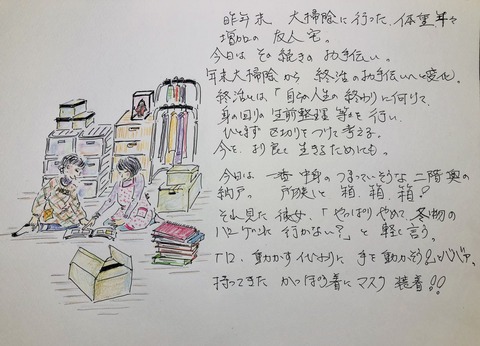 昨年末 大掃除に行った、体重年々
増加の友人宅。
今日は その続きの お手伝い。
年末大掃除から 終活のお手伝いへと変化。
終活とは「自らの人生の終わりに向けて、
身の回りの生前整理 等々を行い、
ひとまず 区切りをつけて考える。
今を、より良く生きるためにも。
今日は 一番 中身の つまっていそうな 二階奥の
納戸。 所狭しと 箱、箱、箱!
それ見た彼女、「やっぱり やめて、冬物の
バーゲンに 行かない?」と 軽く言う。
「口、動かす代わりに 手を動かそう!」
持ってきた かっぽう着に マスク 装着!!